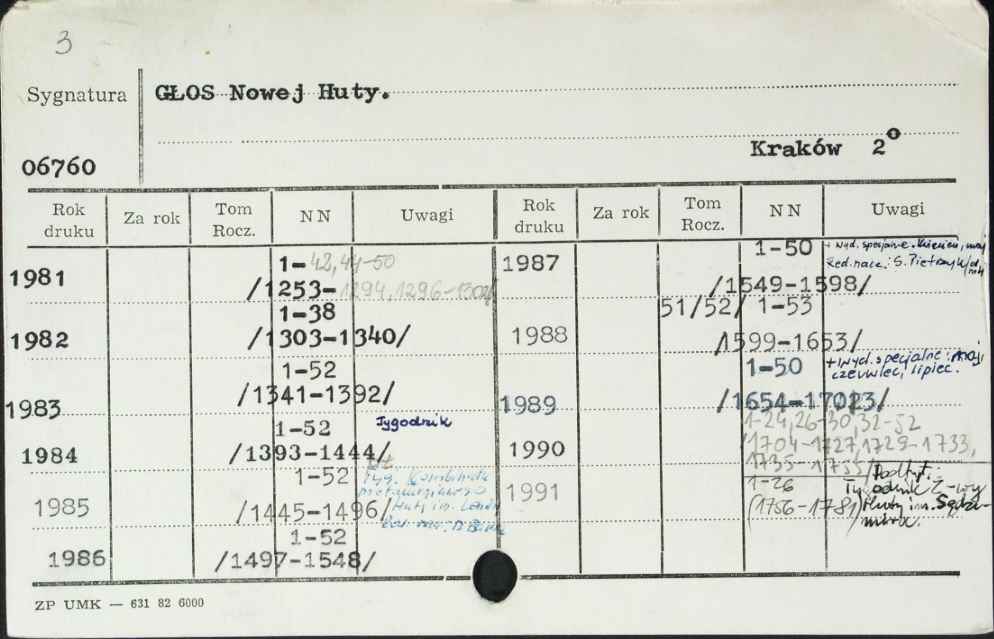 3
Sygnatura GŁOS Nowej Huty.
06760 Kraków 2°
Rok druku Za rok Tom Rocz. NN Uwagi Rok druku Za rok Tom Rocz. NN Uwagi
1981 1-42,44-50
/1253-1294,1296-1302/
1982 1-38
/1303-1340/
1983 1-52
/1341-1392/
1984 1-52 Tygodnik
/1393-1444/
1985 1-52 Tyg. Kombinatu
/1445-1496/ Huty im. Lenina
1986 1-52
/1497-1548/
1987 1-50 + wyd. specjalne. kwiecień, maj
Red. nacz.: S. Pietrzyk
/1549-1598/
1988 51/52/ 1-53
/1599-1653/
1989 1-50 + wyd. specjalne: maj,
czerwiec, lipiec.
/1654-1703/
1990 1-24,26-30,32-52
/1704-1727,1729-1733,
1735-1755/
1991 1-26 Podtyt.:
(1756-1781) Tygodnik Z-wy
Huty im. Sędzi-
mira.
ZP UMK — 631 82 6000